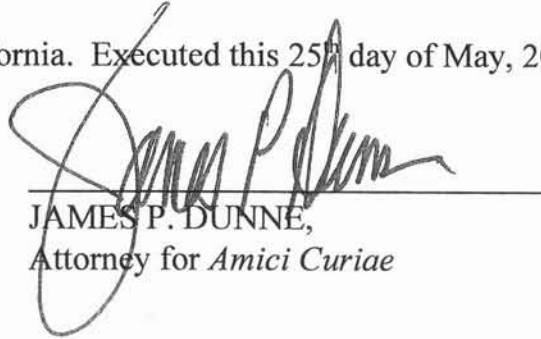 ornia. Executed this 25th day of May, 20
James P. Dunne
JAMES P. DUNNE,
Attorney for Amici Curiae